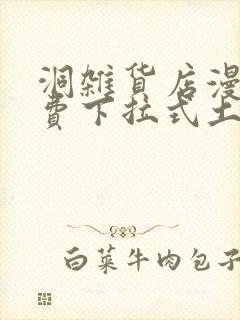 洞雑貨店漫
費下拉式土
白菜牛肉包子